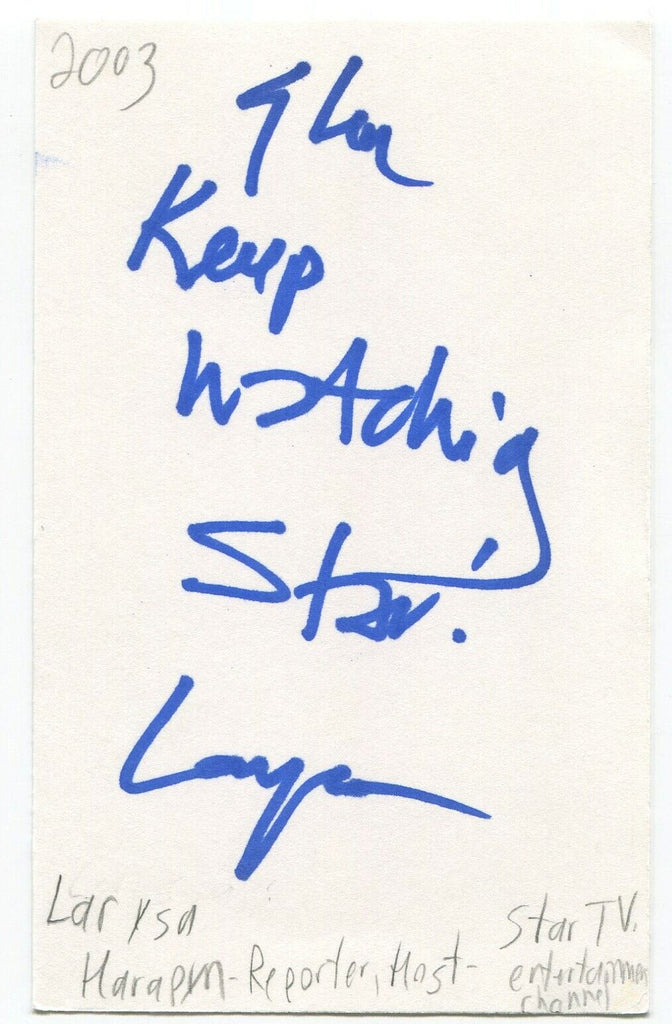 2003
Keep
Watching
Star!
Larysa
Larysa
Star TV.
Harapyn - Reporter, Host -
entertainment
channel